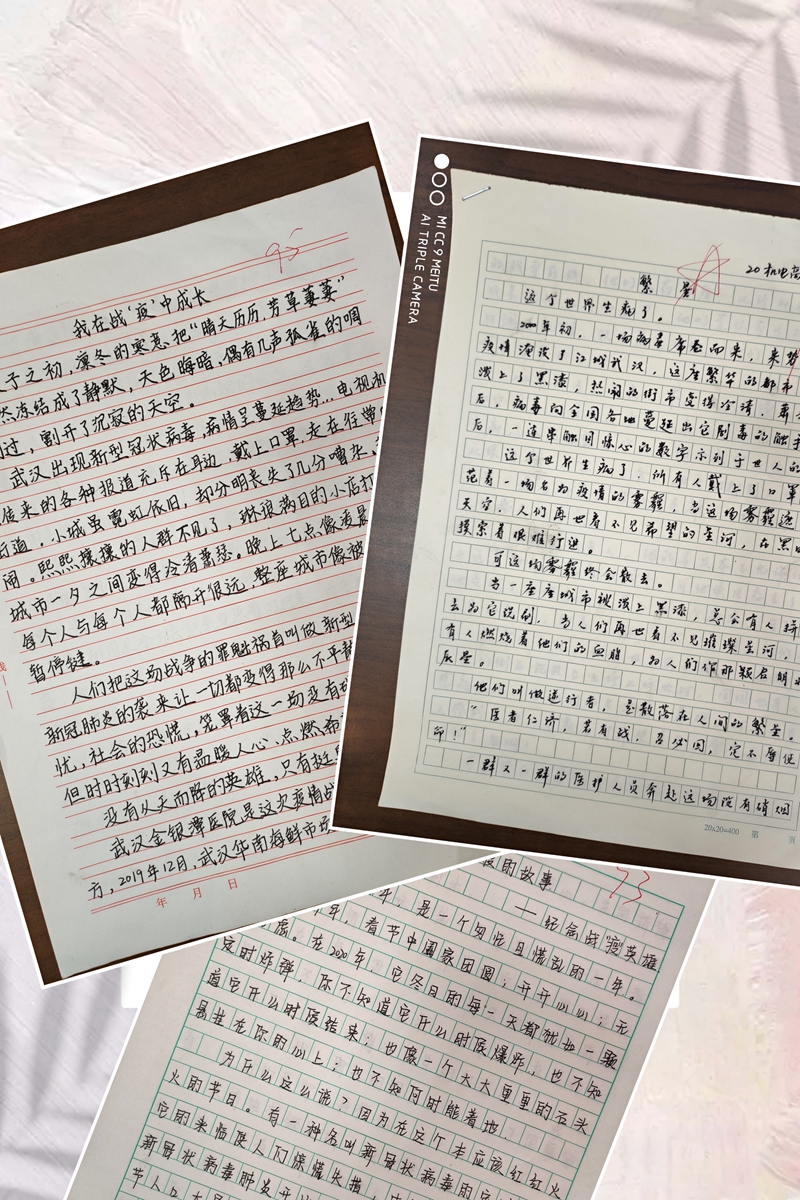 95
我在战‘疫’中成长
子之初，凛冬的寒意，把“晴天历历，芳草萋萋”
然冻结成了静默，天色晦暗，偶有几声孤雀的啁
过，割开了沉寂的天空。
武汉出现新型冠状病毒，病情呈蔓延趋势…电视机
传来的各种报道充斥在耳边，戴上口罩，走在往常
街道，小城虽霓虹依旧，却分明丧失了几分嘈杂
闹。熙熙攘攘的人群不见了，琳琅满目的小店打
城市一夕之间变得冷清萧瑟。晚上七点像凌晨
每个人与每个人都隔开很远，整座城市像被
暂停键。
人们把这场战争的罪魁祸首叫做新型
新冠肺炎的袭来让一切都变得那么不平静
忧，社会的恐慌，笼罩着这一场没有硝
但时时刻刻又有温暖人心、点燃希
没有从天而降的英雄，只有挺
武汉金银潭医院是这次疫情战
方，2019年12月，武汉华南海鲜市场
年 月 日
MI CC 9 MEITU
AI TRIPLE CAMERA
20机电高
繁 星
这个世界生病了。
2020年初，一场病毒席卷而来，来势
疫情淹没了江城武汉，这座繁华的都市
泼上了黑漆，热闹的街市变得冷清，萧
后，病毒向全国各地蔓延出它剧毒的触手
后，一连串触目惊心的数字示列于世人的
这个世界生病了，所有人戴上了口罩
范着一场名为疫情的雾霾，当这场雾霾遮
天空，人们再也看不见希望的星河，在黑暗
摸索着艰难行进。
可这场雾霾终会散去。
当一座座城市被泼上黑漆，总会有人拼
去为它洗刷，当人们再也看不见璀璨星河，
有人燃烧着他们的血脂，为人们作那颗启明
辰星。
他们叫做逆行者，是散落在人间的繁星。
“医者仁济，若有战，召必回，定不辱使
命！”
一群又一群的医护人员奔赴这场没有硝烟
20x20=400 第 页
93
疫的故事
——纪念战“疫”英雄
年，是一个匆忙且慌乱的一年。
年，春节中国家团圆；开开心心；无
虑。在2020年，它冬日的每一天都犹如一颗
定时炸弹，你不知道它什么时候爆炸，也不知
道它什么时候结束；也像一个大大重重的石头
悬挂在你的心上；也不知何时能着地。
为什么这么说？因为在这个本应该红红火
火的节日。有一种名叫新冠状病毒的
它的来临使人们惊慌失措
新冠状病毒肺炎